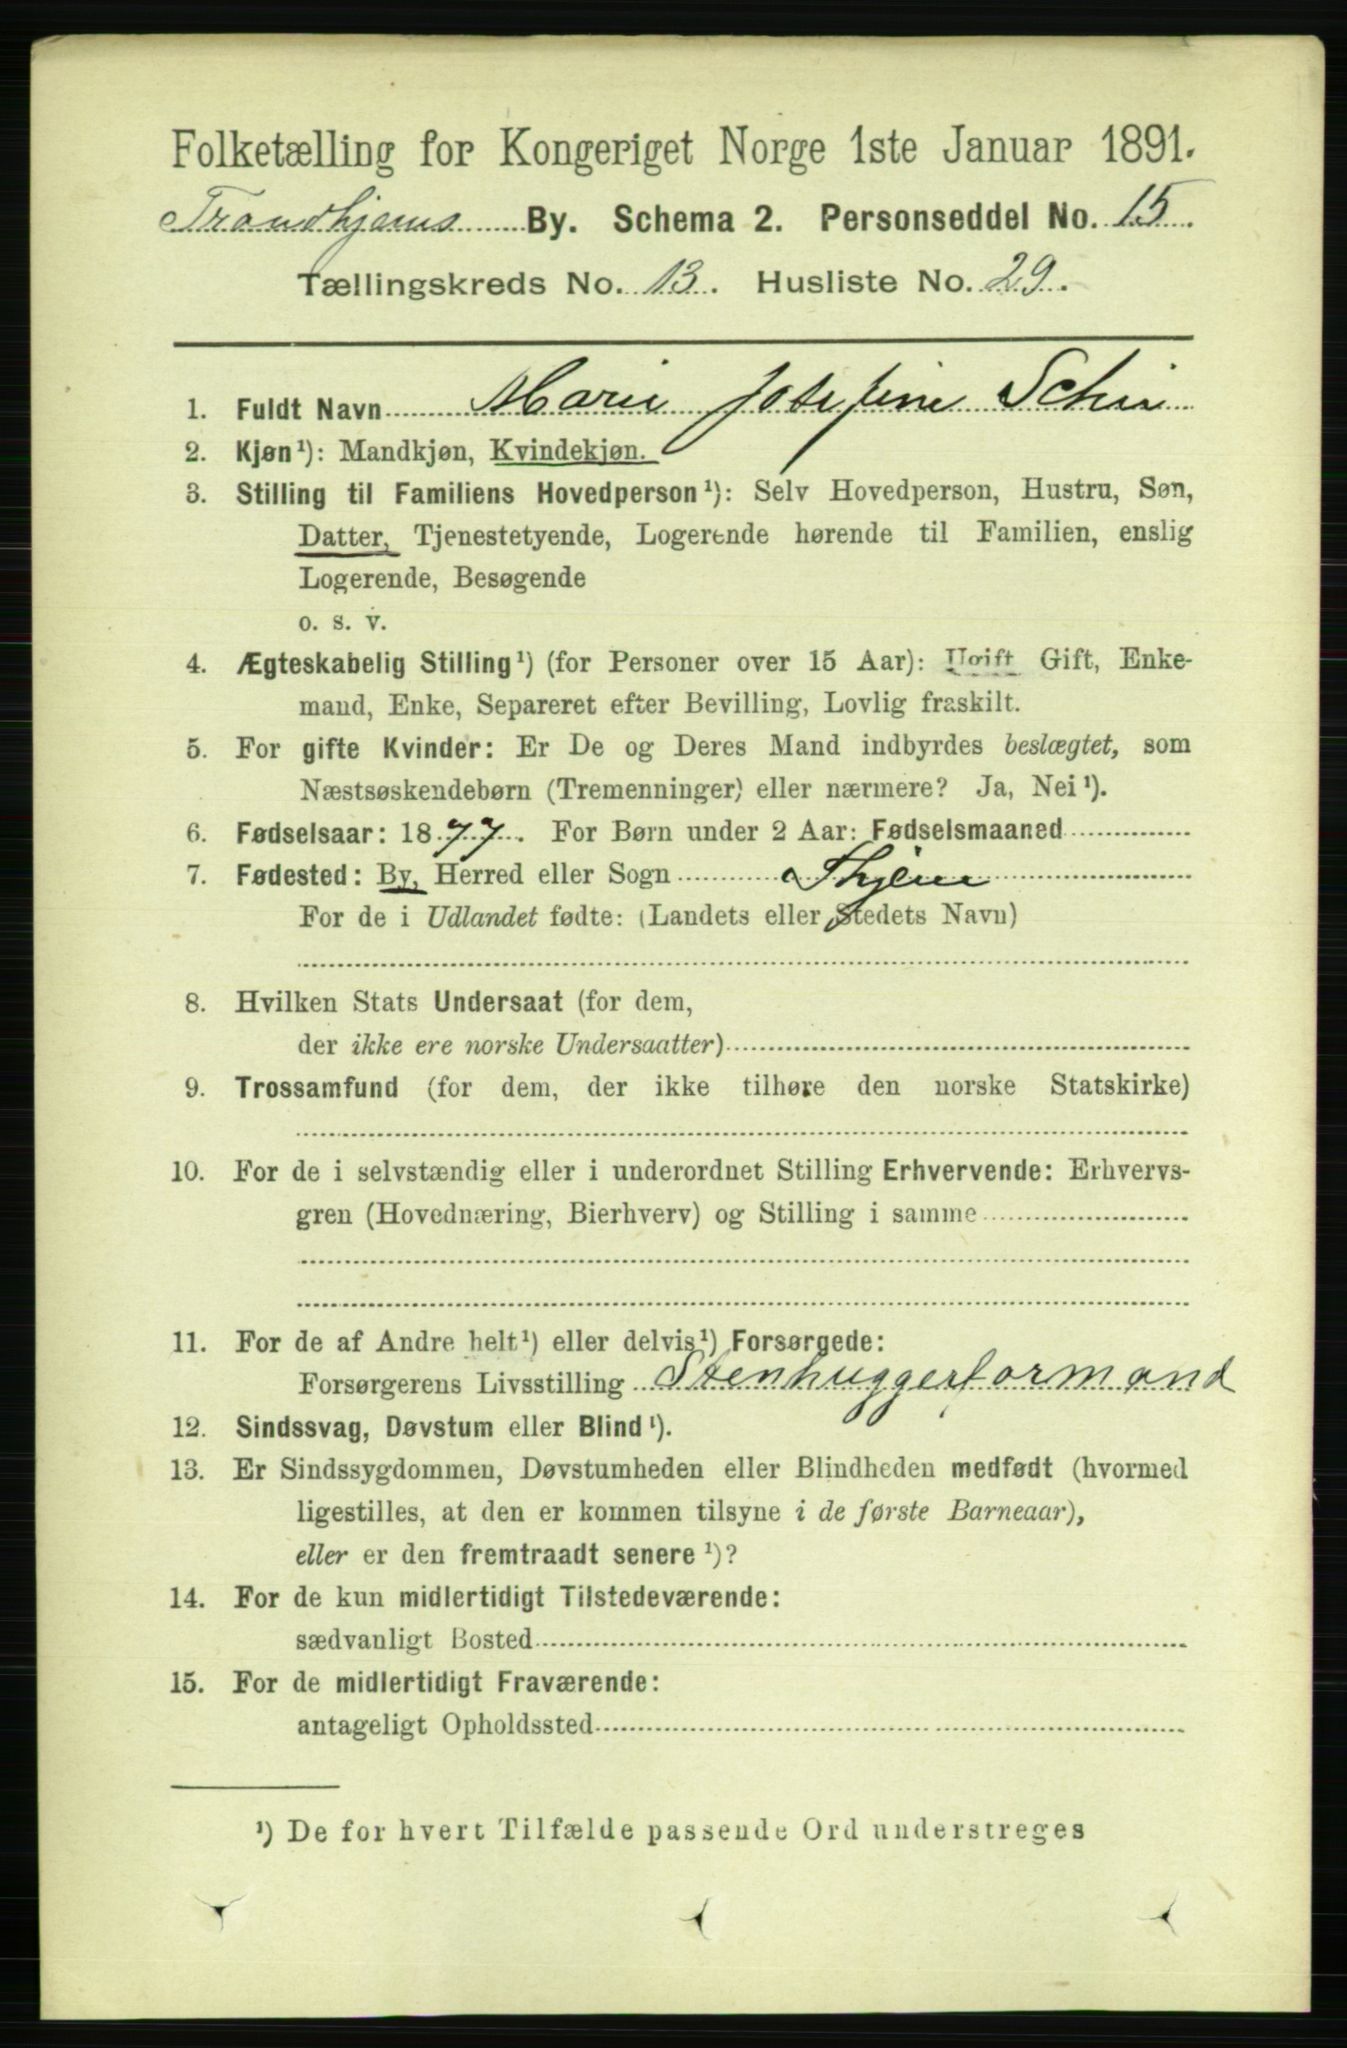 Folketælling for Kongeriget Norge 1ste Januar 1891.
Trondhjems By. Schema 2. Personseddel No. 15.
Tællingskreds No. 13. Husliste No. 29.
1. Fuldt Navn Marie Josefine
2. Kjøn¹): Mandkjøn, Kvindekjøn.
3. Stilling til Familiens Hovedperson¹): Selv Hovedperson, Hustru, Søn,
Datter, Tjenestetyende, Logerende hørende til Familien, enslig
Logerende, Besøgende
o. s. v.
4. Ægteskabelig Stilling¹) (for Personer over 15 Aar): Ugift Gift, Enke-
mand, Enke, Separeret efter Bevilling, Lovlig fraskilt.
5. For gifte Kvinder: Er De og Deres Mand indbyrdes beslægtet, som
Næstsøskendebørn (Tremenninger) eller nærmere? Ja, Nei¹).
6. Fødselsaar: 1877. For Børn under 2 Aar: Fødselsmaaned
7. Fødested: By, Herred eller Sogn
For de i Udlandet fødte: (Landets eller Stedets Navn)
8. Hvilken Stats Undersaat (for dem,
der ikke ere norske Undersaatter)
9. Trossamfund (for dem, der ikke tilhøre den norske Statskirke)
10. For de i selvstændig eller i underordnet Stilling Erhvervende: Erhvervs-
gren (Hovednæring, Bierhverv) og Stilling i samme
11. For de af Andre helt¹) eller delvis¹) Forsørgede:
Forsørgerens Livsstilling Stenhuggerformand
12. Sindssvag, Døvstum eller Blind¹).
13. Er Sindssygdommen, Døvstumheden eller Blindheden medfødt (hvormed
ligestilles, at den er kommen tilsyne i de første Barneaar),
eller er den fremtraadt senere¹)?
14. For de kun midlertidigt Tilstedeværende:
sædvanligt Bosted
15. For de midlertidigt Fraværende:
antageligt Opholdssted
¹) De for hvert Tilfælde passende Ord understreges